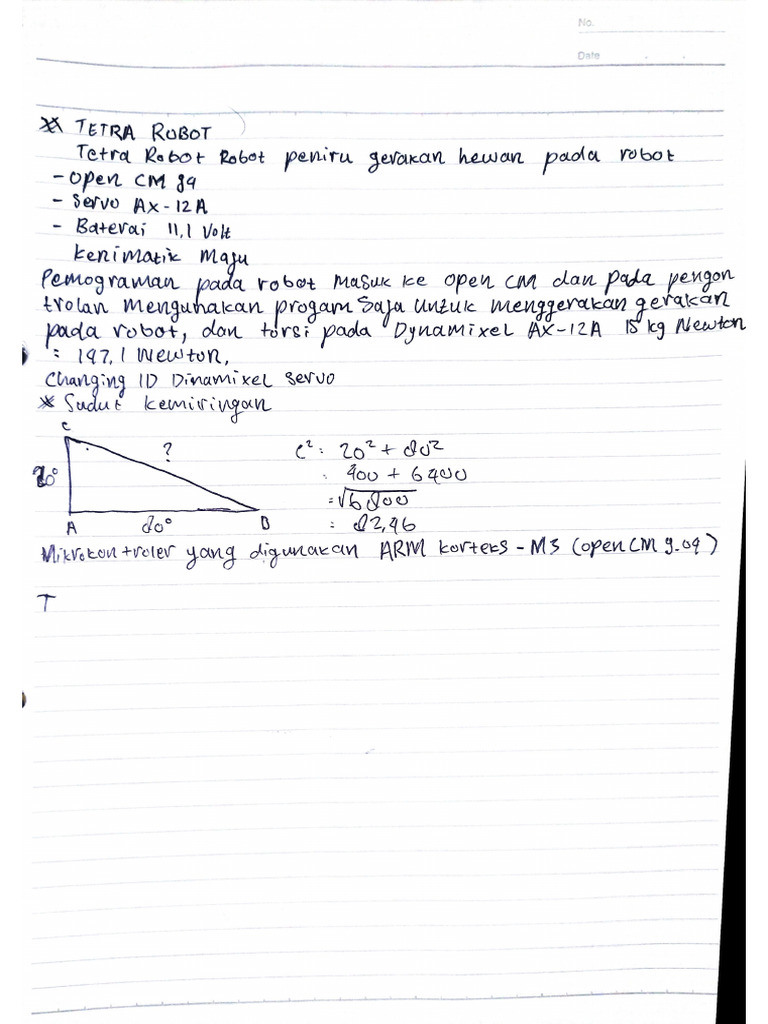 No.
Date
** TETRA ROBOT
Tetra Robot Robot peniru gerakan hewan pada robot
- Open CM 94
- Servo AX-12A
- Baterai 11,1 Volt
Kenimatik Maju
Pemograman pada robot masuk ke open CM dan pada pengon
trolan mengunakan progam Saja untuk menggerakan gerakan
pada robot, dan torsi pada Dynamixel AX-12A 15 kg Newton
= 147,1 Newton,
Changing ID Dinamixel servo
* Sudut kemiringan
C
?
20°
A 80° B
C² : 20² + 80²
: 400 + 6400
= √6800
: 82,46
Mikrokontroler yang digunakan ARM korteks - M3 (open CM 9.04)
T